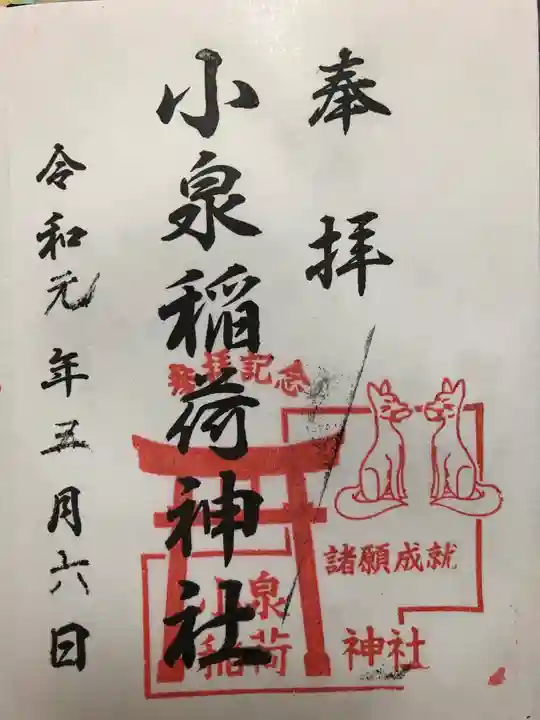 奉拝
小泉稲荷神社
令和元年五月六日
参拝記念
諸願成就
小泉
稲荷
神社